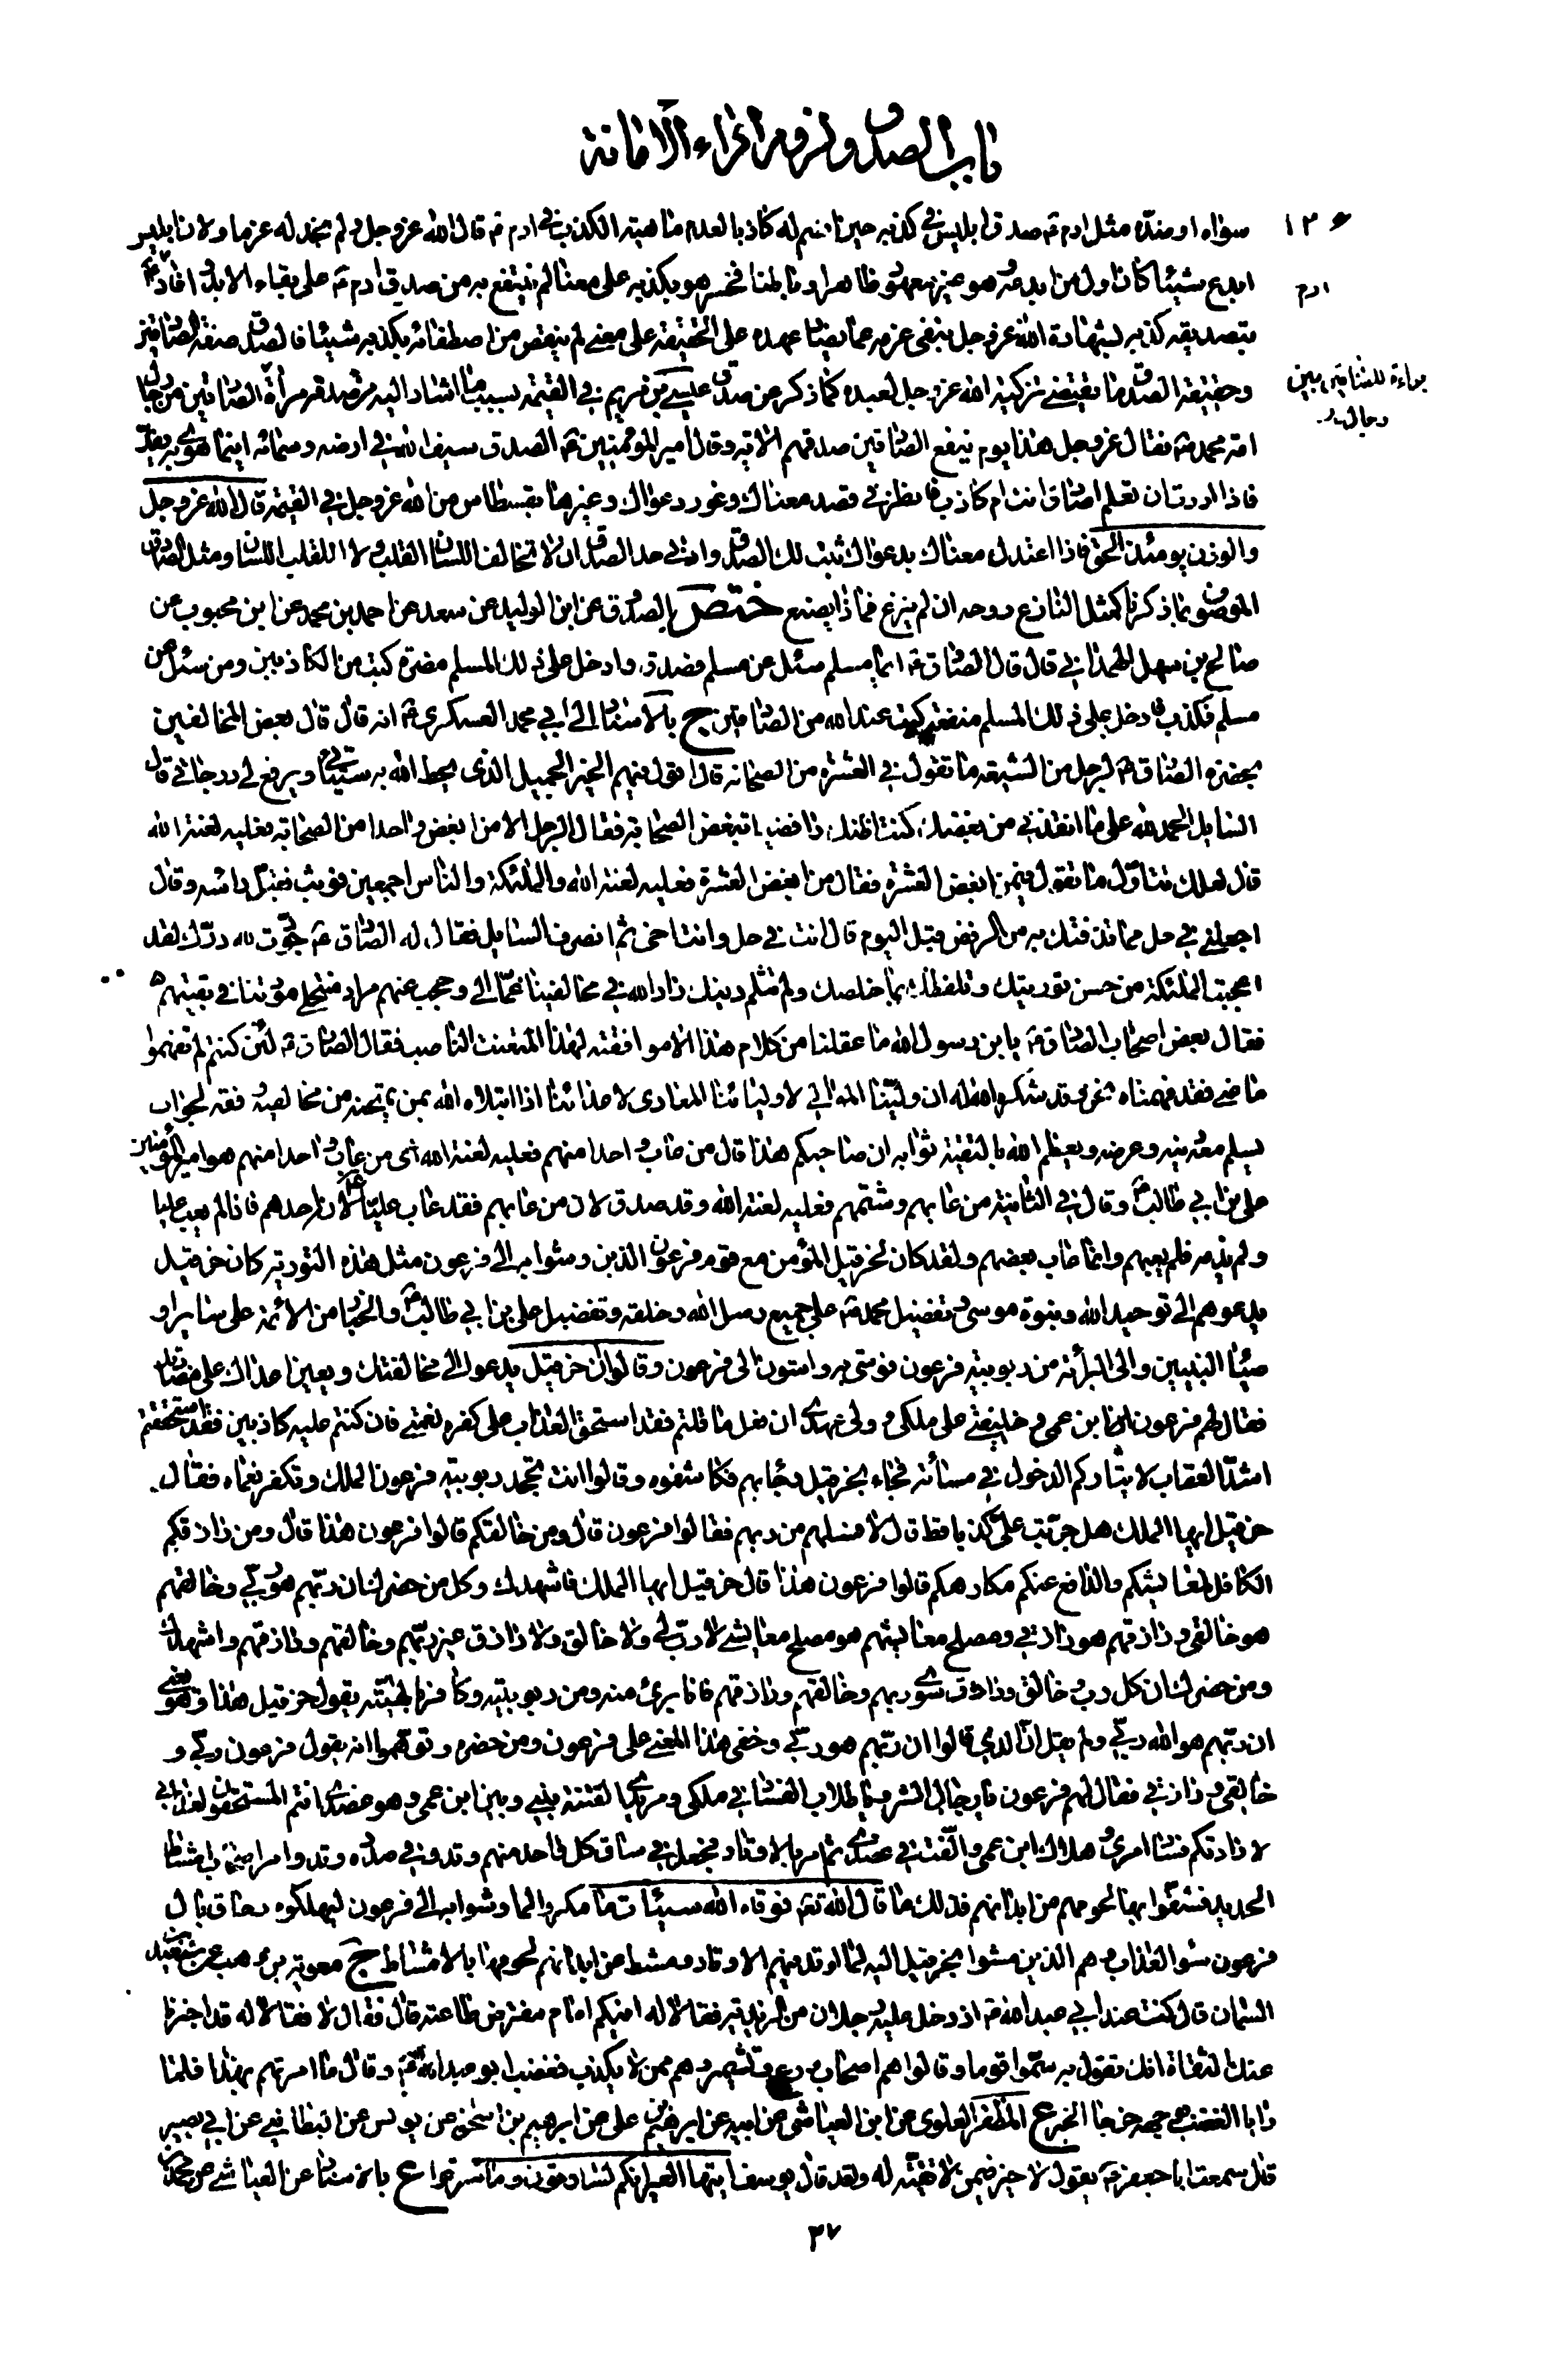 باب الصدق ولزوم اداء الامانة
١٣٦
سواه او ضده مثل ادم ع صدق ابليس في كذبه حين اقسم له كاذبا لعدم ماهية الكذب في ادم ع قال الله عز وجل ولم نجد له عزما ولان ابليس
ابدع شيئا كان اول من ابدعه وهو غير معهود ظاهرا وباطنا فخسر هو بكذبه على معنى لم ينتفع به من صدق ادم ع على بقاء الابد وافاد ادم ع
ادم
بتصديقه كذبه بشهادة الله عز وجل بنفي عزمه عما يضاد عهده على الحقيقة على معنى لم ينقص من اصطفائه بكذبه شيئا فالصدق صفة الصادقين
وحقيقة الصدق ما يقتضي تزكية الله عز وجل لعبده كما ذكر عن صدق عيسى بن مريم في القيمة بسبب ما اشار اليه من صدقه مرآة الصادقين من رجال
براءة للصادقين من
رجال
امة محمد ص فقال عز وجل هذا يوم ينفع الصادقين صدقهم الاية وقال امير المؤمنين ع الصدق سيف الله في ارضه وسمائه اينما هوى به يقد
فاذا اردت ان تعلم اصادق انت ام كاذب فانظر في قصد معناك وغور دعواك وعيرها بقسطاس من الله عز وجل في القيمة قال الله عز وجل
والوزن يومئذ الحق فاذا اعتدل معناك بدعواك ثبت لك الصدق وادنى حد الصدق ان لا تخالف اللسان القلب ولا القلب اللسان ومثل الصادق
الموصوف بما ذكرنا كمثل النازع روحه ان لم ينزع فماذا يصنع ختص الصدوق عن ابن الوليد عن سعد عن احمد بن محمد عن ابن محبوب عن
صالح بن سهل الهمداني قال قال الصادق ع ايما مسلم سئل عن مسلم فصدق وادخل على ذلك المسلم مضرة كتب من الكاذبين ومن سئل عن
مسلم فكذب فادخل على ذلك المسلم منفعة كتب عند الله من الصادقين ج بالاسناد الى ابي محمد العسكري ع انه قال قال بعض المخالفين
بحضرة الصادق ع لرجل من الشيعة ما تقول في العشرة من الصحابة قال اقول فيهم الخير الجميل الذي يحط الله به سيئاتي ويرفع لي درجاتي قال
السايل الحمد لله على ما انقذني من بغضك كنت اظنك رافضيا تبغض الصحابة فقال الرجل الا من ابغض واحدا من الصحابة فعليه لعنة الله
قال لعلك تتاول ما تقول فيمن ابغض العشرة فقال من ابغض العشرة فعليه لعنة الله والملئكة والناس اجمعين فوثب فقبل راسه وقال
اجعلني في حل مما قذفتك به من الرفض قبل اليوم قال انت في حل وانت اخي ثم انصرف السايل فقال له الصادق ع جودت لله درك لقد
اعجبت الملئكة من حسن توريتك وتلفظك بما خلصك ولم تثلم دينك زاد الله في مخالفينا غما الى وحجب عنهم مراد منتحلي مودتنا في بقيتهم
فقال بعض اصحاب الصادق ع يابن رسول الله ما عقلنا من كلام هذا الا موافقته لهذا المتعنت الناصب فقال الصادق ع لئن كنتم لم تفهموا
ما عنى فقد فهمناه نحن وقد شكره الله له ان ولينا الموالي لاوليائنا المعادي لاعدائنا اذا ابتلاه الله بمن يمتحنه من مخالفيه وفقه لجواب
يسلم معه دينه وعرضه ويعظم الله بالتقية ثوابه ان صاحبكم هذا قال من عاب واحدا منهم فعليه لعنة الله اى من عاب واحدا منهم هو امير المؤمنين
علي بن ابي طالب ع وقال في الثانية من عابهم وشتمهم فعليه لعنة الله وقد صدق لان من عابهم فقد عاب عليا ع لانه احدهم فاذا لم يعب عليا
ولم يذمه فلم يعبهم وانما عاب بعضهم ولقد كان لحزقيل المؤمن مع قوم فرعون الذين وشوا به الى فرعون مثل هذه التورية كان حزقيل
يدعوهم الى توحيد الله ونبوة موسى وتفضيل محمد ص على جميع رسل الله وخلقه وتفضيل علي بن ابي طالب ع والخيار من الائمة على ساير او
صياء النبيين والى البرائة من ربوبية فرعون فوشى به واشون الى فرعون وقالوا ان حزقيل يدعوا الى مخالفتك ويعين اعداك على مضادتك
فقال لهم فرعون ابن عمي وخليفتي على ملكي وولي عهدي ان فعل ما قلتم فقد استحق العذاب على كفره نعمتي فان كنتم عليه كاذبين فقد استحققتم
اشد العقاب لايثاركم الدخول في مسائته فجاء بحزقيل وجاء بهم فكاشفوه وقالوا انت تجحد ربوبية فرعون الملك وتكفر نعماه فقال
حزقيل ايها الملك هل جربت علي كذبا قط قال لا فسلهم من ربهم فقالوا فرعون قال ومن خالقكم قالوا فرعون هذا قال ومن رازقكم
الكافل لمعايشكم والدافع عنكم مكارهكم قالوا فرعون هذا قال حزقيل ايها الملك فاشهدك وكل من حضرك ان ربهم هو ربي وخالقهم
هو خالقي ورازقهم هو رازقي ومصلح معايشهم هو مصلح معايشي لا رب لي ولا خالق ولا رازق غير ربهم وخالقهم ورازقهم واشهدك
ومن حضرك ان كل رب وخالق ورازق سوى ربهم وخالقهم ورازقهم فانا برىء منه ومن ربوبيته وكافر بالهيته يقول حزقيل هذا وهو يعني
ان ربهم هو الله ربي ولم يقل ان الذي قالوا ان ربهم هو ربي وخفي هذا المعنى على فرعون ومن حضره وتوهموا انه يقول فرعون ربي و
خالقي ورازقي فقال لهم فرعون يا رجال الشر ويا طلاب الفساد في ملكي ومريدي الفتنة بيني وبين ابن عمي وهو عضدي انتم المستحقون لعذابي
لارادتكم فساد امري وهلاك ابن عمي والفت في عضدي ثم امر بالاوتاد فجعل في ساق كل واحد منهم وتد وفي صدره وتد وامر اصحاب امشاط
الحديد فشقوا بها لحومهم من ابدانهم فذلك ما قال الله تع فوقاه الله سيئات ما مكروا لما وشوا به الى فرعون ليهلكوه وحاق بال
فرعون سوء العذاب وهم الذين وشوا بحزقيل اليه لما اوتد فيهم الاوتاد ومشط عن ابدانهم لحومها بالامشاط ج معوية بن وهب عن سعيد
السمان قال كنت عند ابي عبد الله ع اذ دخل عليه رجلان من الزيدية فقالا له افيكم امام مفترض طاعته قال فقال لا فقالا له قد اخبرنا
عنك الثقاة انك تقول به وسموا قوما وقالوا هم اصحاب ورع وتشمير وهم ممن لا يكذب فغضب ابو عبد الله ع وقال ما امرتهم بهذا فلما
رايا الغضب في وجهه خرجا الخبر ع المظفر العلوي عن ابن العياشي عن ابيه عن ابراهيم بن علي عن ابرهيم بن اسحق عن يونس عن البطائني عن ابي بصير
قال سمعت ابا جعفر ع يقول لا خير فيمن لا تقية له ولقد قال يوسف ايتها العير انكم لسارقون وما سرقوا ع بالاسناد عن العياشي عن محمد بن
٣٧